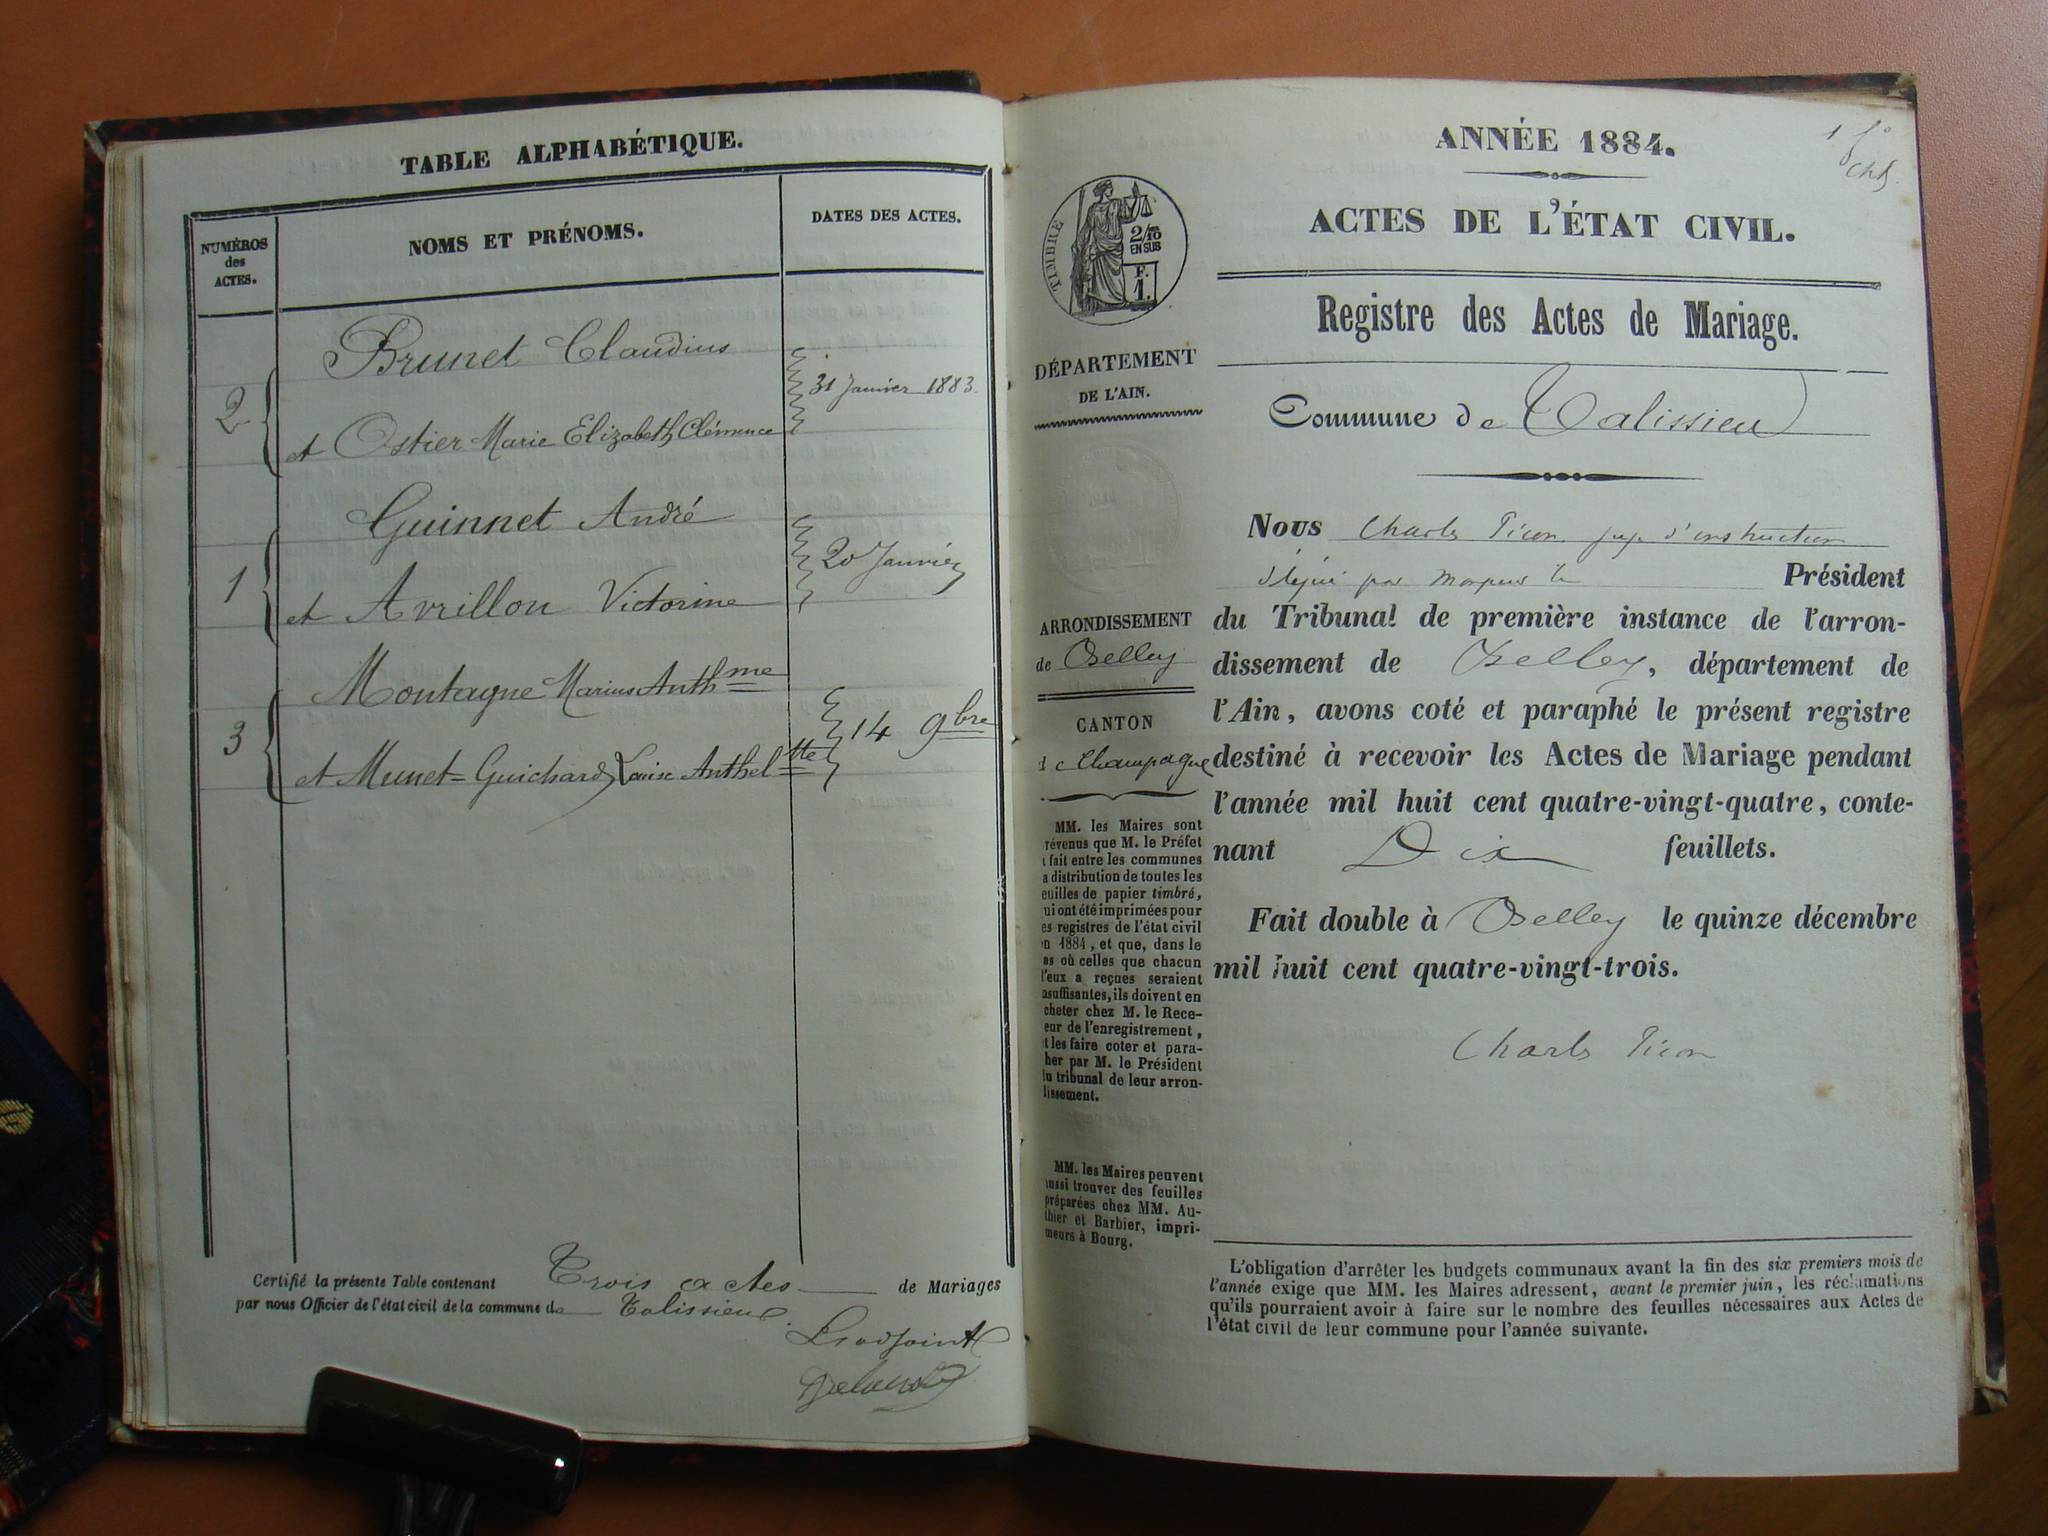 TABLE ALPHABÉTIQUE.
NUMÉROS
des
ACTES.
NOMS ET PRÉNOMS.
DATES DES ACTES.
Brunet Claudius
2
31 Janvier 1883
et Ostier Marie Elizabeth Clémence
Guinnet André
1
20 Janvier
et Avrillon Victorine
Montagne Marius Anthme
3
14 9bre
et Munet-Guichard Louise Antheltte
Certifié la présente Table contenant Trois actes de Mariages
par nous Officier de l'état civil de la commune de Talissieu.
ANNÉE 1884.
ACTES DE L'ÉTAT CIVIL.
TIMBRE
2/10
EN SUS
F.
1.
Registre des Actes de Mariage.
DÉPARTEMENT
DE L'AIN.
Commune de Talissieu
Nous Charles Picon juge d'instruction
délégué par Monsieur le Président
du Tribunal de première instance de l'arron-
dissement de Belley, département de
l'Ain, avons coté et paraphé le présent registre
destiné à recevoir les Actes de Mariage pendant
l'année mil huit cent quatre-vingt-quatre, conte-
nant Dix feuillets.
Fait double à Belley le quinze décembre
mil huit cent quatre-vingt-trois.
Charles Picon
ARRONDISSEMENT
de Belley
CANTON
de Champagne
MM. les Maires sont
révenus que M. le Préfet
fait entre les communes
a distribution de toutes les
euilles de papier timbré,
ui ont été imprimées pour
es registres de l'état civil
n 1884, et que, dans le
as où celles que chacun
l'eux a reçues seraient
nsuffisantes, ils doivent en
cheter chez M. le Rece-
eur de l'enregistrement,
t les faire coter et para-
her par M. le Président
du tribunal de leur arron-
lissement.
MM. les Maires peuvent
ussi trouver des feuilles
préparées chez MM. Au-
thier et Barbier, impri-
meurs à Bourg.
L'obligation d'arrêter les budgets communaux avant la fin des six premiers mois de
l'année exige que MM. les Maires adressent, avant le premier juin, les réclamations
qu'ils pourraient avoir à faire sur le nombre des feuilles nécessaires aux Actes de
l'état civil de leur commune pour l'année suivante.